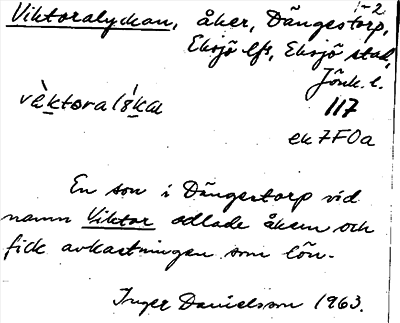 1-2
Viktoralyckan, åker, Dängestorp,
Eksjö lfs, Eksjö stad,
Jönk. l.
117
ek 7F0a
En son i Dängestorp vid
namn Viktor odlade åkern och
fick avkastningen som lön.
Inger Danielsson 1963.